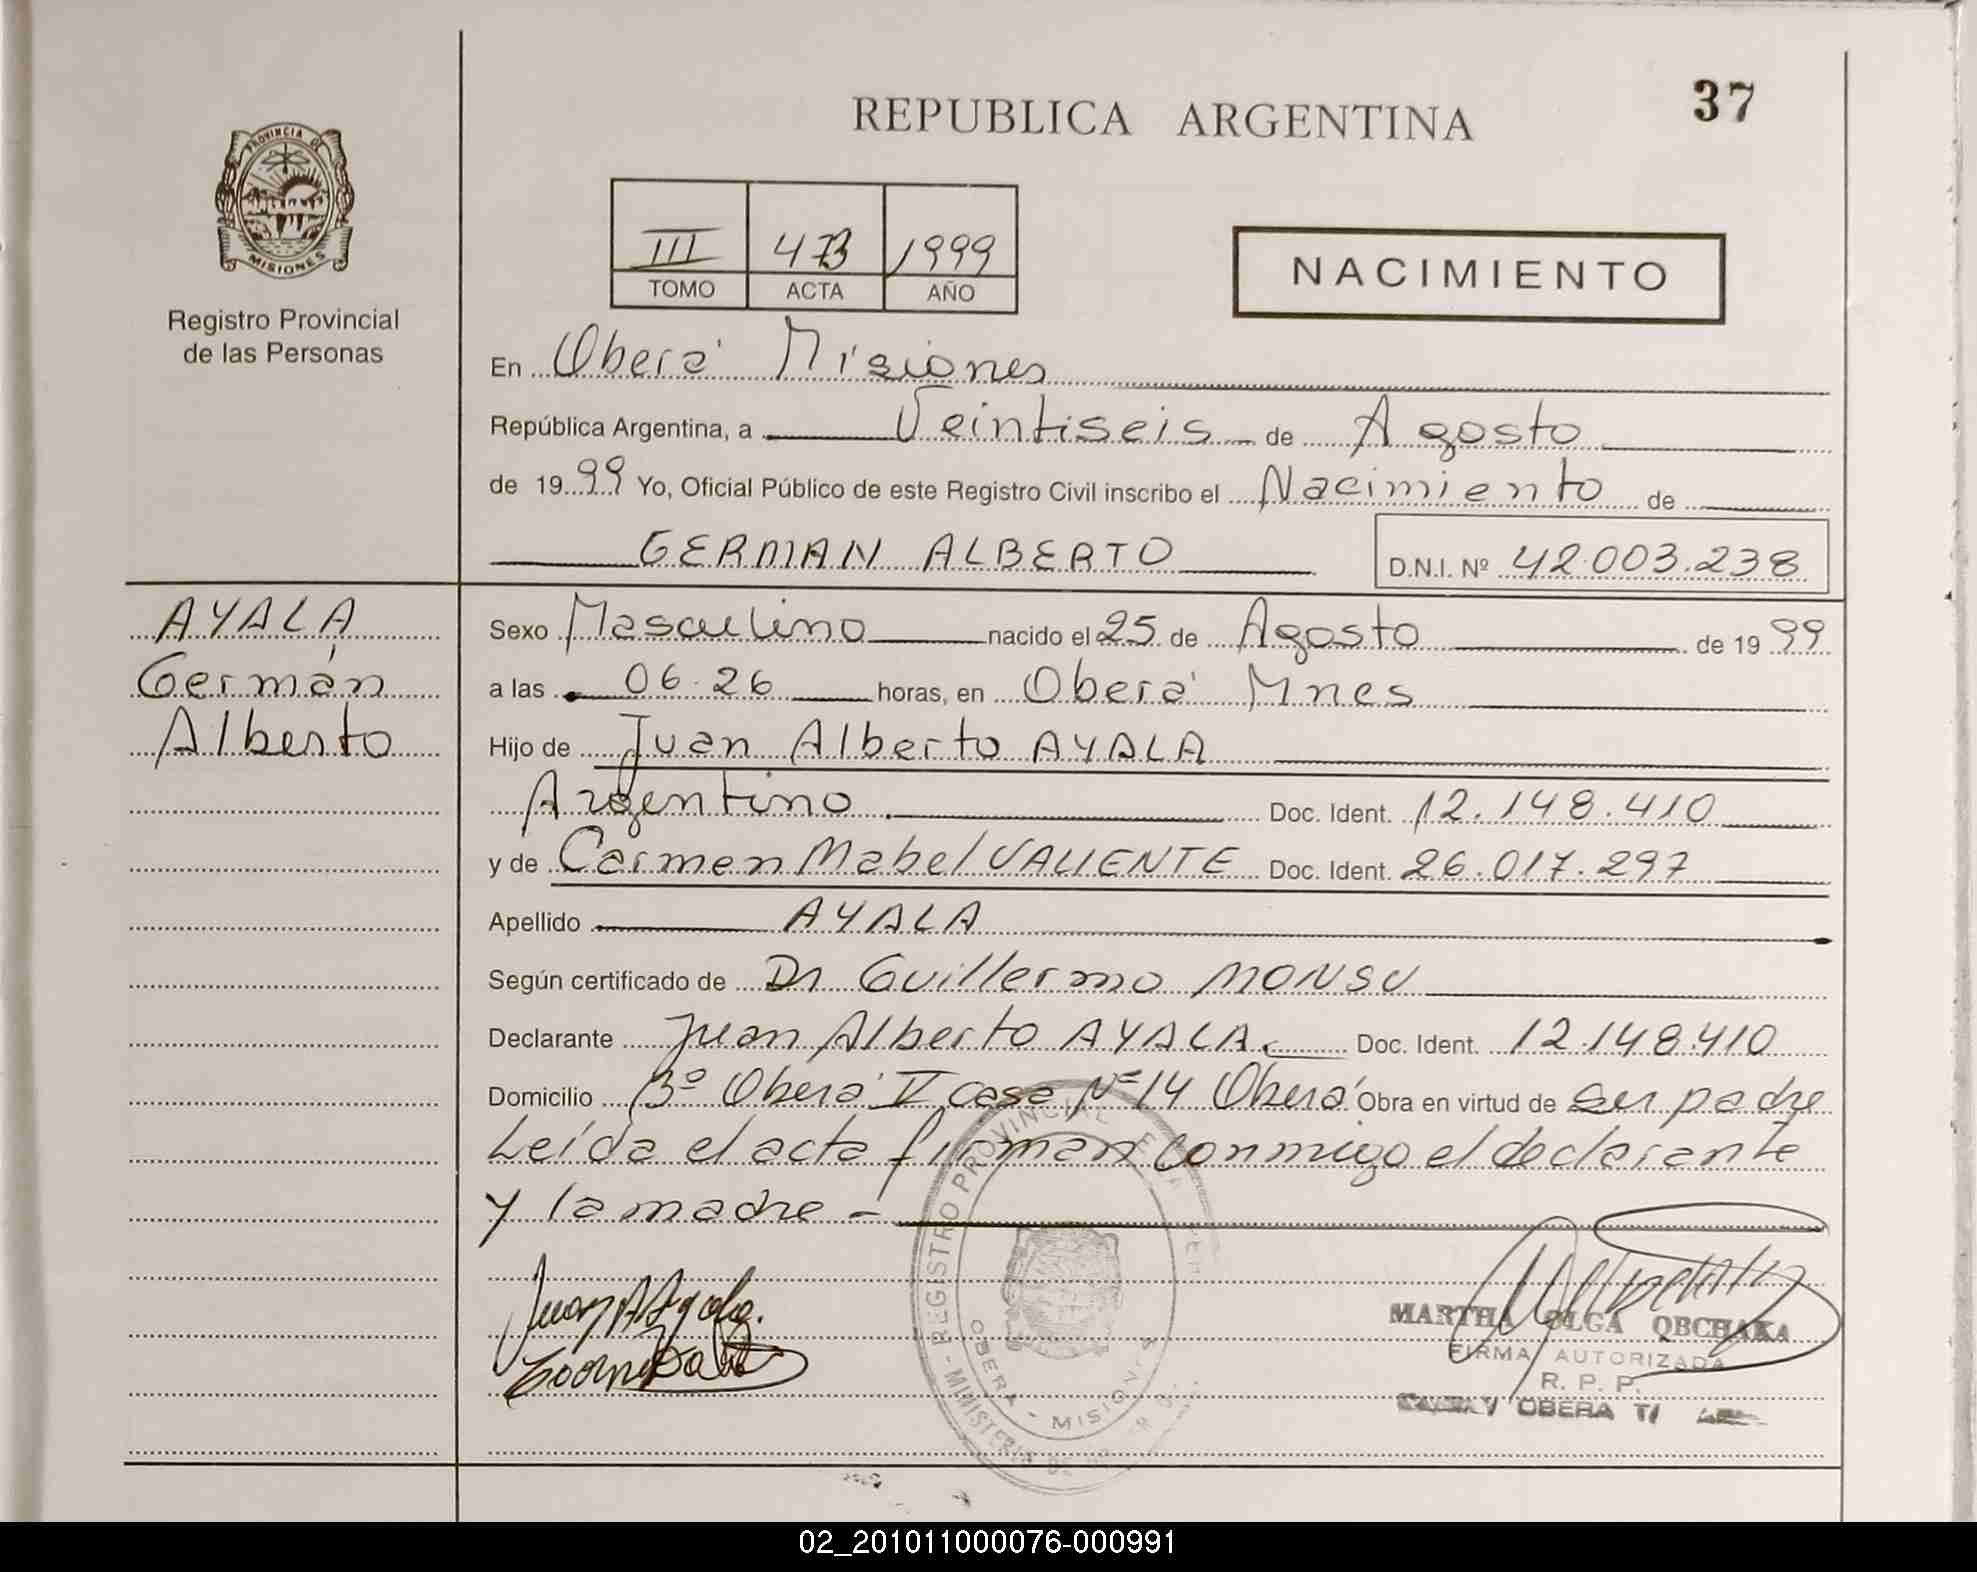 37
REPUBLICA ARGENTINA
PROVINCIA DE
MISIONES
Registro Provincial
de las Personas
III 1999
TOMO ACTA AÑO
NACIMIENTO
En Oberá Misiones
República Argentina, a Veintiseis de Agosto
de 1999 Yo, Oficial Público de este Registro Civil inscribo el Nacimiento de
GERMAN ALBERTO D.N.I. Nº 42.003.238
AYALA
Germán
Alberto
Sexo Masculino nacido el 25 de Agosto de 1999
a las 06.26 horas, en Oberá Mnes
Hijo de Juan Alberto AYALA
Argentino Doc. Ident. 12.148.410
y de Carmen Mabel VALIENTE Doc. Ident. 26.017.297
Apellido AYALA
Según certificado de Dr Guillermo MONSU
Declarante Juan Alberto AYALA Doc. Ident. 12.148.410
Domicilio Bº Oberá V casa Nº 14 Oberá Obra en virtud de ser padre
Leída el acta firman conmigo el declarante
y la madre -
Juan A Ayala.
REGISTRO PROVINCIAL
OBERA - MISIONES
MARTHA OLGA OBCHAKA
FIRMA AUTORIZADA
R. P. P.
OBERA
02_201011000076-000991